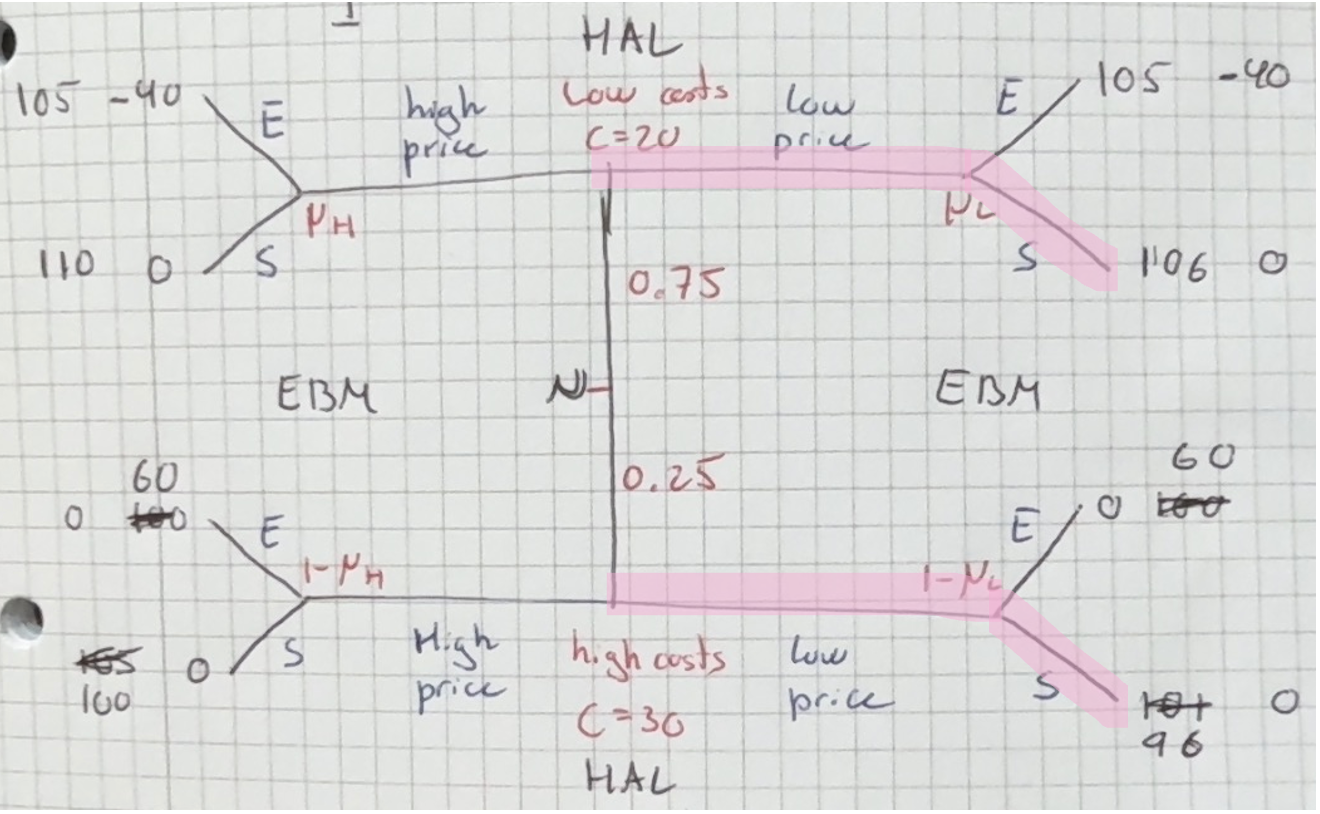 HAL
105 -40
E
high
price
Low costs
C=20
low
price
E
105 -40
μH
μL
110 0
S
S
106 0
0.75
EBM
N
EBM
0.25
60
0 100
E
1-μH
60
E
0 100
1-μL
165
100
0
S
High
price
high costs
C=30
low
price
S
101
96
0
HAL